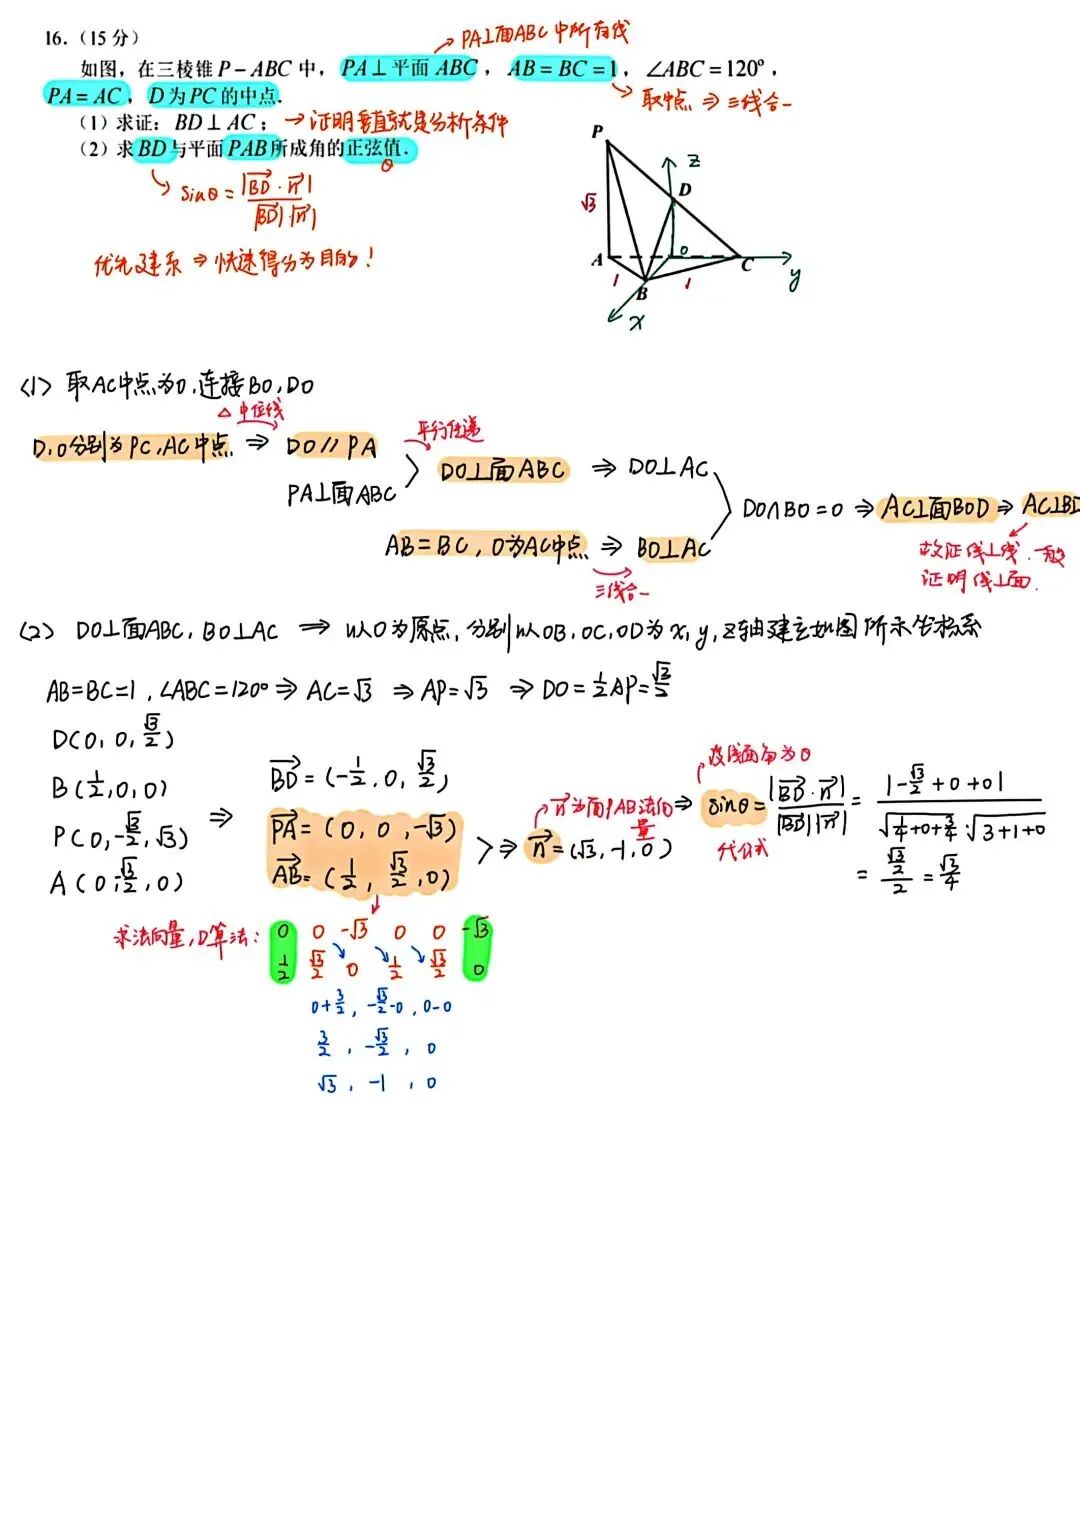 16.（15 分）
PA⊥面ABC中所有线
如图，在三棱锥 P－ABC 中，PA⊥平面 ABC，AB＝BC＝1，∠ABC＝120°，
PA＝AC，D 为 PC 的中点.
取中点 ⇒ 三线合一
（1）求证：BD⊥AC；
→证明垂直就是分析条件
（2）求 BD 与平面 PAB 所成角的正弦值.
θ
sinθ = |BD·n| / |BD| |n|
优先建系 ⇒ 快速得分为目的！
P
z
D
√3
A
O
C
y
1
B
1
x
(1) 取AC中点为O,连接BO,DO
△中位线
平行传递
D,O分别为PC,AC中点 ⇒ DO∥PA
PA⊥面ABC
DO⊥面ABC ⇒ DO⊥AC
AB=BC, O为AC中点 ⇒ BO⊥AC
三线合一
DO∩BO=O ⇒ AC⊥面BOD ⇒ AC⊥BD
故证线⊥线,一般
证明线⊥面.
(2) DO⊥面ABC, BO⊥AC ⇒ 以O为原点,分别以OB,OC,OD为x,y,z轴建立如图所示坐标系
AB=BC=1,∠ABC=120° ⇒ AC=√3 ⇒ AP=√3 ⇒ DO=1/2AP=√3/2
D(0,0,√3/2)
B(1/2,0,0)
P(0,-√3/2,√3)
A(0,-√3/2,0)
⇒
BD=(-1/2,0,√3/2)
PA=(0,0,-√3)
AB=(1/2,√3/2,0)
n为面PAB法向量
⇒ n=(√3,-1,0)
设线面角为θ
⇒ sinθ=|BD·n| / |BD||n| = |-√3/2+0+0| / √(1/4+0+3/4)·√(3+1+0)
代公式
= (√3/2)/2 = √3/4
求法向量,D算法:
0 0 -√3 0 0 -√3
1/2 √3/2 0 1/2 √3/2 0
0+3/2, -√3/2-0, 0-0
3/2, -√3/2, 0
√3, -1, 0